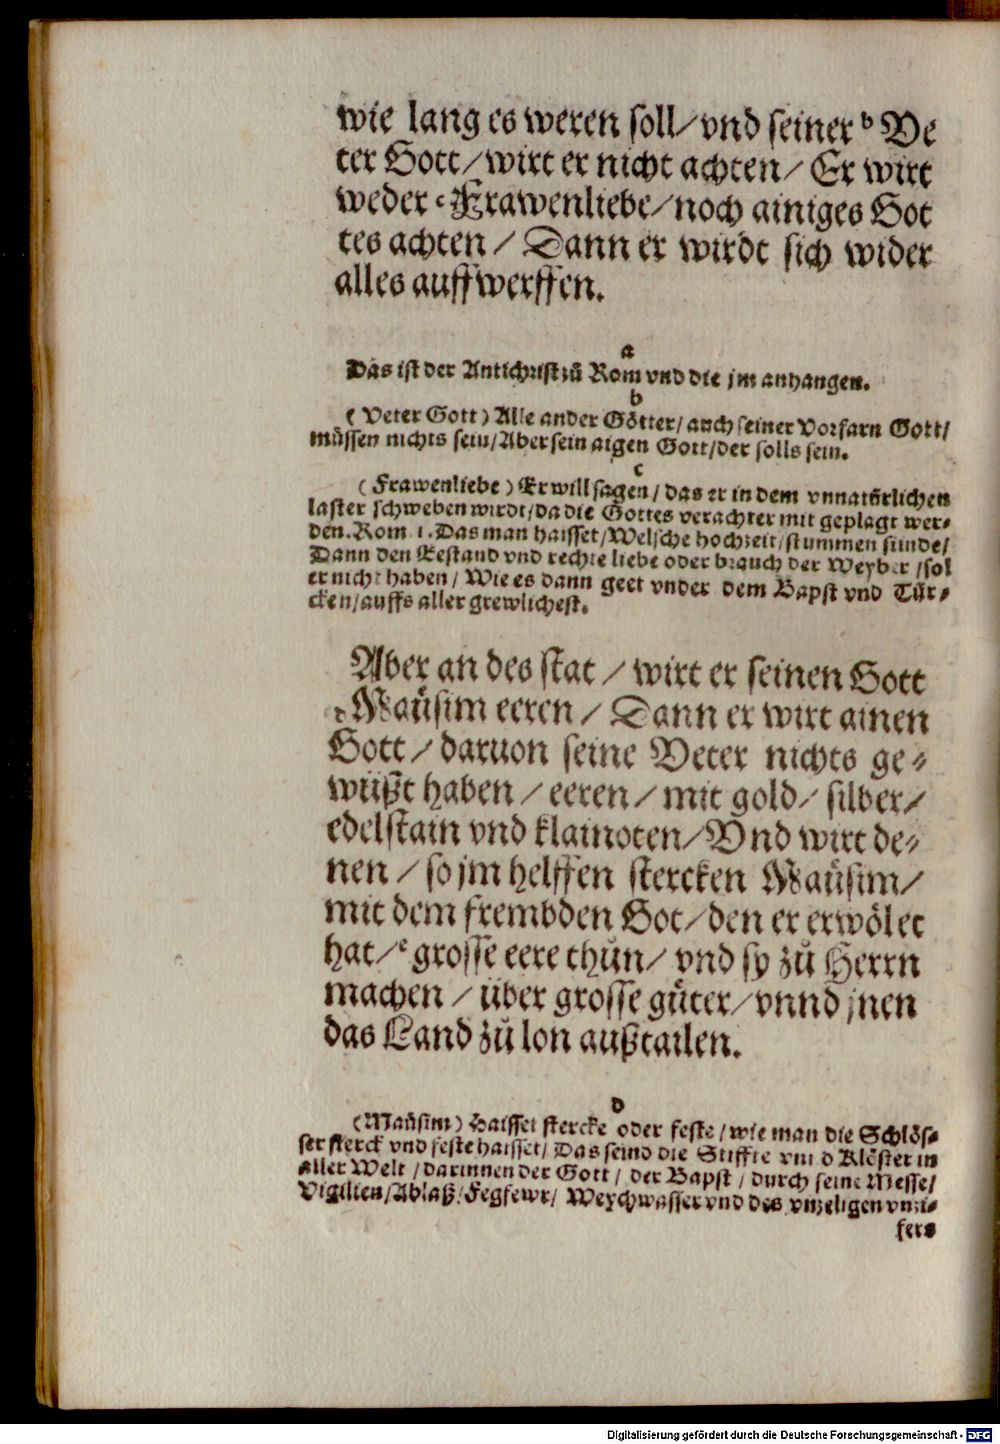 wie lang es weren soll/vnd seiner b Ve
ter Gott/wirt er nicht achten/ Er wirt
weder c Frawenliebe/noch ainiges Got
tes achten / Dann er wirdt sich wider
alles auffwerffen.
a
Das ist der Antichrist zů Rom vnd die jm anhangen.
b
( Veter Gott ) Alle ander Götter/ auch seiner Vorfarn Gott/
müssen nichts sein/Aber sein aigen Gott/der solls sein.
c
( Frawenliebe ) Er will sagen / das er in dem vnnatürlichen
laster schweben wirdt/da die Gottes verachter mit geplagt wer-
den. Rom. 1. Das man haisset/Welsche hochzeit/stummen sünde/
Dann den Eestand vnd rechte liebe oder brauch der Weyber /sol
er nicht haben/ Wie es dann geet vnder dem Bapst vnd Tür-
cken/auffs aller grewlichest.
Aber an des stat / wirt er seinen Gott
d Maüsim eeren / Dann er wirt ainen
Gott / daruon seine Veter nichts ge-
wüßt haben / eeren / mit gold/ silber/
edelstain vnd klainoten/Vnd wirt de-
nen / so jm helffen stercken Maüsim/
mit dem frembden Got/den er erwölet
hat/ e grosse eere thůn/ vnd sy zů Herrn
machen / über grosse güter/vnnd jnen
das Land zů lon außtailen.
d
(Maüsim) Haisset stercke oder feste / wie man die Schlös-
ser sterck vnd feste haisset/ Das seind die Stiffte vnnd Klöster in
aller Welt / darinnen der Gott / der Bapst / durch seine Messe/
Vigilien/Ablaß/Fegfewr/ Weychwasser vnd des vnzeligen vnzi-
fers
Digitalisierung gefördert durch die Deutsche Forschungsgemeinschaft - DFG